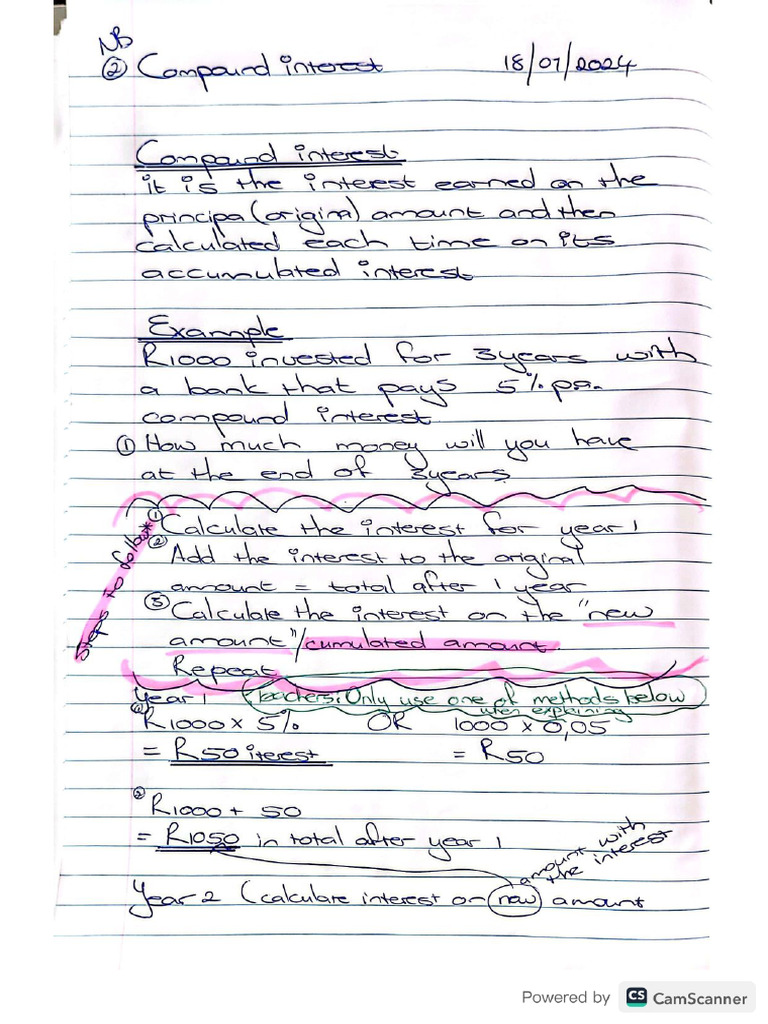 NB
② Compound interest 18/07/2024
Compound interest
it is the interest earned on the
principa (original) amount and then
calculated each time on its
accumulated interest
Example
R1000 invested for 3years with
a bank that pays 5% pa.
compound interest
① How much money will you have
at the end of 3years
Steps to follow
① Calculate the interest for year 1
② Add the interest to the original
amount = total after 1 year
③ Calculate the interest on the "new
amount"/cumulated amount.
Repeat
Year 1 (Teachers: Only use one of methods below
when explaining
① R1000 x 5% OR 1000 x 0,05
= R50 iterest = R50
② R1000 + 50
= R1050 in total after year 1
amount with
the interest
Year 2 (calculate interest on new amount
Powered by CS CamScanner